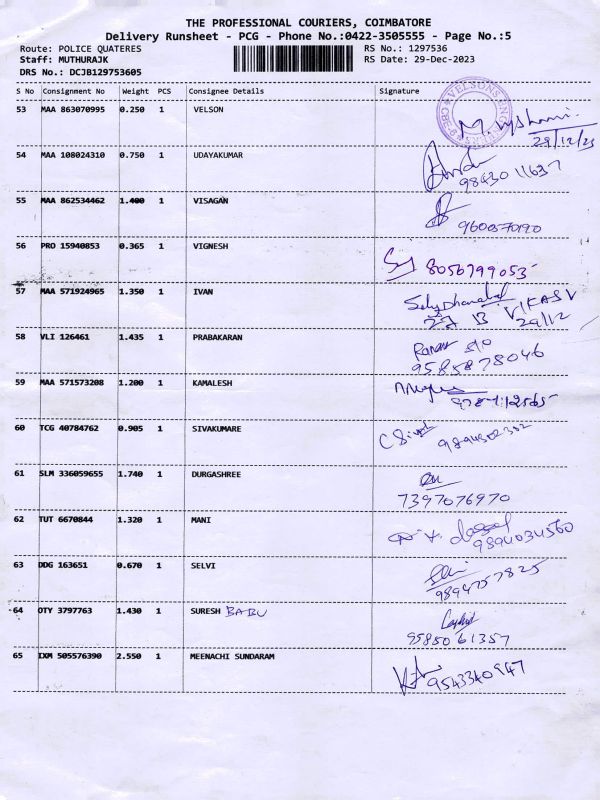 THE PROFESSIONAL COURIERS, COIMBATORE
Delivery Runsheet - PCG - Phone No.:0422-3505555 - Page No.:5
Route: POLICE QUATERES RS No.: 1297536
Staff: MUTHURAJK RS Date: 29-Dec-2023
DRS No.: DCJB129753605
S No Consignment No Weight PCS Consignee Details Signature
53 MAA 863070995 0.250 1 VELSON
29/12/23
54 MAA 108024310 0.750 1 UDAYAKUMAR
9843011637
55 MAA 862534462 1.400 1 VISAGAN
9600570190
56 PRO 15940853 0.365 1 VIGNESH
8056799053
57 MAA 571924965 1.350 1 IVAN
VIKAS V
29/12
58 VLI 126461 1.435 1 PRABAKARAN
S/O
9585878046
59 MAA 571573208 1.200 1 KAMALESH
60 TCG 40784762 0.905 1 SIVAKUMARE
61 SLM 336059655 1.740 1 DURGASHREE
7397076970
62 TUT 6670844 1.320 1 MANI
9894034560
63 DDG 163651 0.670 1 SELVI
9894757825
64 OTY 3797763 1.430 1 SURESH BABU
9585061357
65 IXM 505576390 2.550 1 MEENACHI SUNDARAM
9543340947